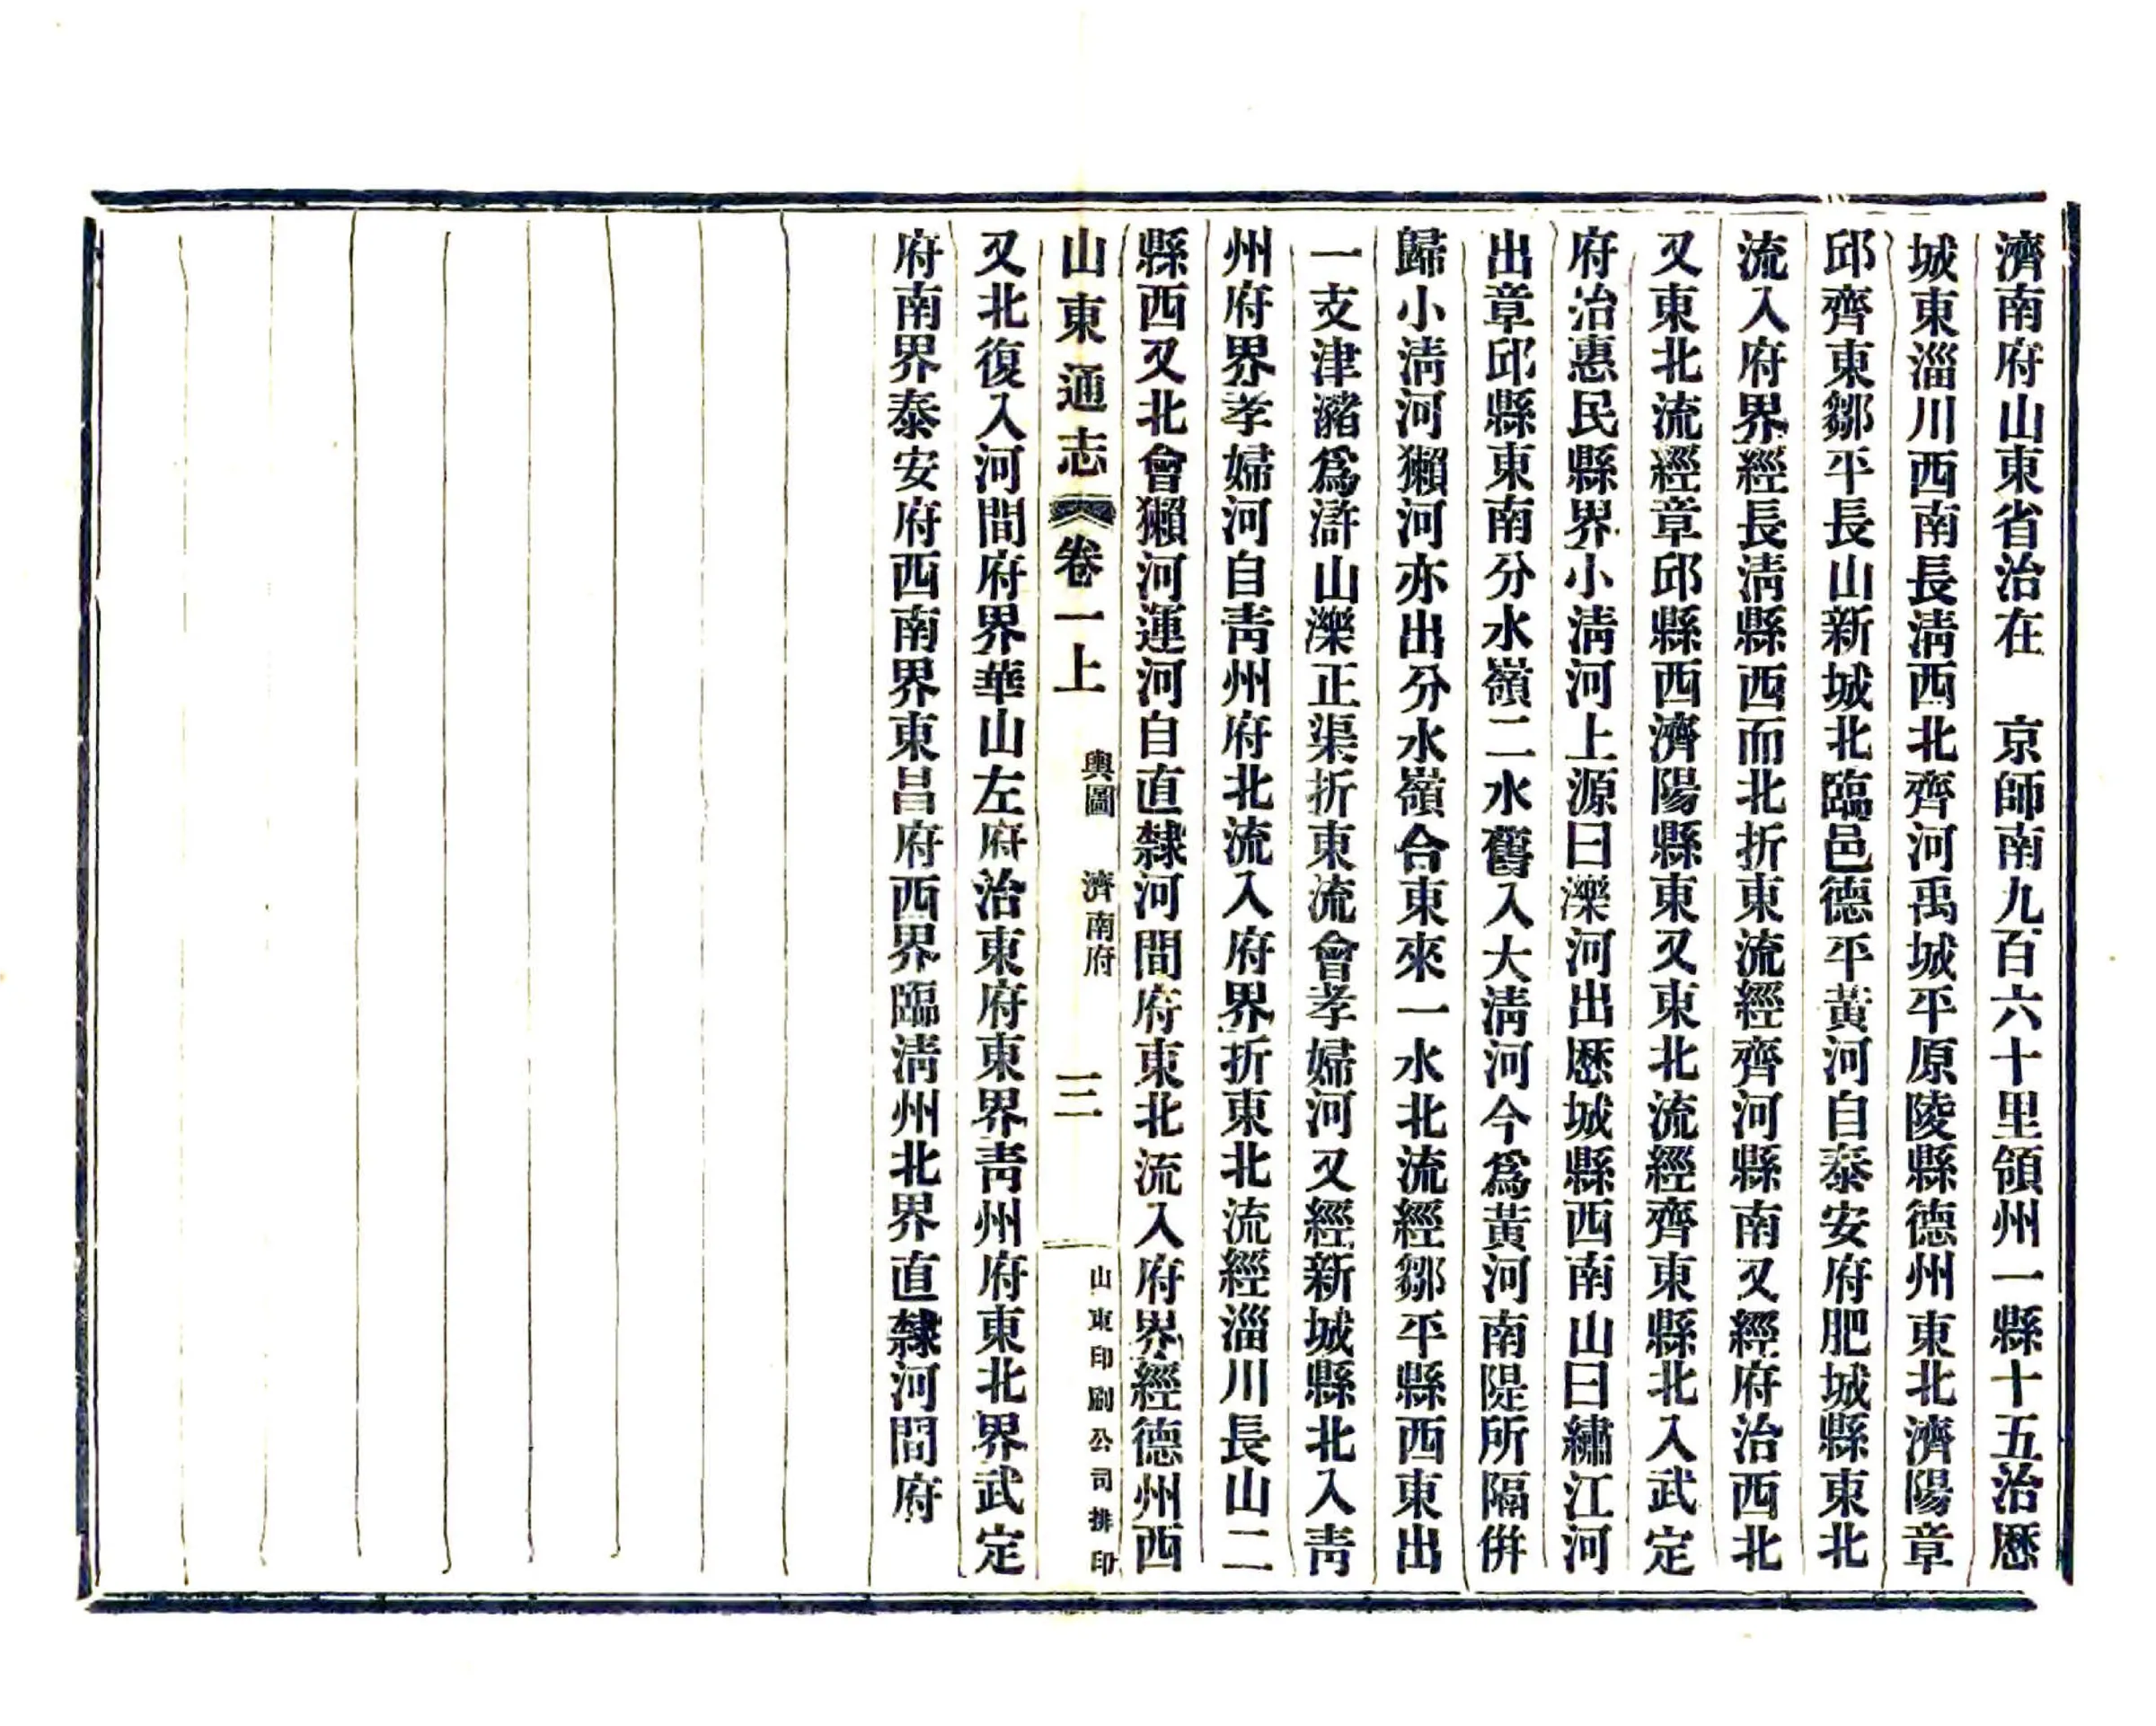 濟南府山東省治在　京師南九百六十里領州一縣十五治歷
城東淄川西南長淸西北齊河禹城平原陵縣德州東北濟陽章
邱齊東鄒平長山新城北臨邑德平黃河自泰安府肥城縣東北
流入府界經長淸縣西而北折東流經齊河縣南又經府治西北
又東北流經章邱縣西濟陽縣東又東北流經齊東縣北入武定
府治惠民縣界小淸河上源曰濼河出歷城縣西南山曰繡江河
出章邱縣東南分水嶺二水舊入大淸河今爲黃河南隄所隔併
歸小淸河獺河亦出分水嶺合東來一水北流經鄒平縣西東出
一支津瀦爲滸山濼正渠折東流會孝婦河又經新城縣北入靑
州府界孝婦河自靑州府北流入府界折東北流經淄川長山二
縣西又北會獺河運河自直隸河間府東北流入府界經德州西
山東通志　卷一上　輿圖　濟南府　三　山東印刷公司排印
又北復入河間府界華山左府治東府東界靑州府東北界武定
府南界泰安府西南界東昌府西界臨淸州北界直隸河間府